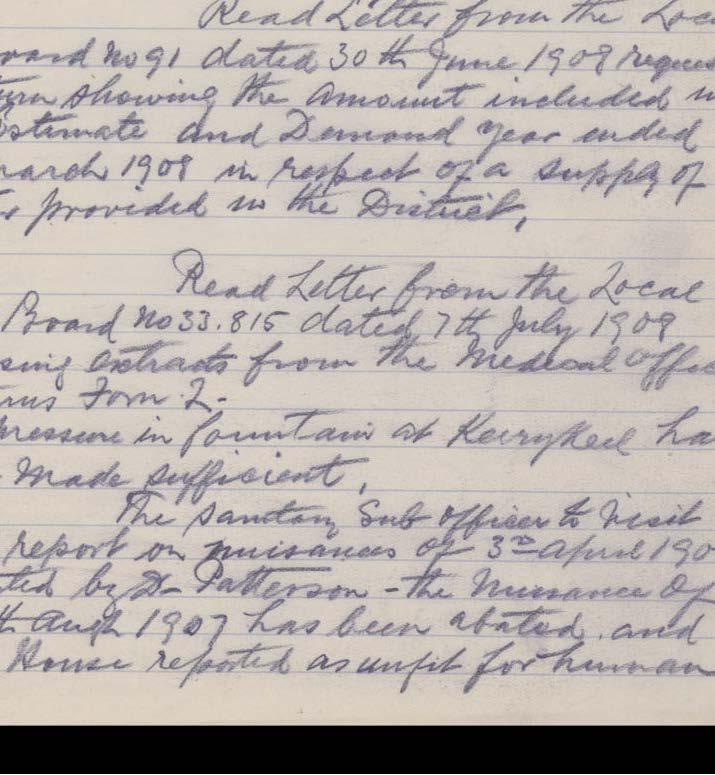 Read Letter from the Loc
oard No 91 dated 30th June 1908 reques
urn showing the amount included in
Estimate and Demand year ended
march 1908 in respect of a supply of
provided in the District,
Read Letter from the Local
Board No 33.815 dated 7th July 1908
sing extracts from the Medical Offic
rns Form 2-
pressure in fountain at Kerrykeel ha
Made sufficient,
The Sanitary Sub officer to visit
report on nuisances of 3rd April 190
ted by Dr Patterson - the Nuisance of
th Augt 1907 has been abated, and
House reported as unfit for human